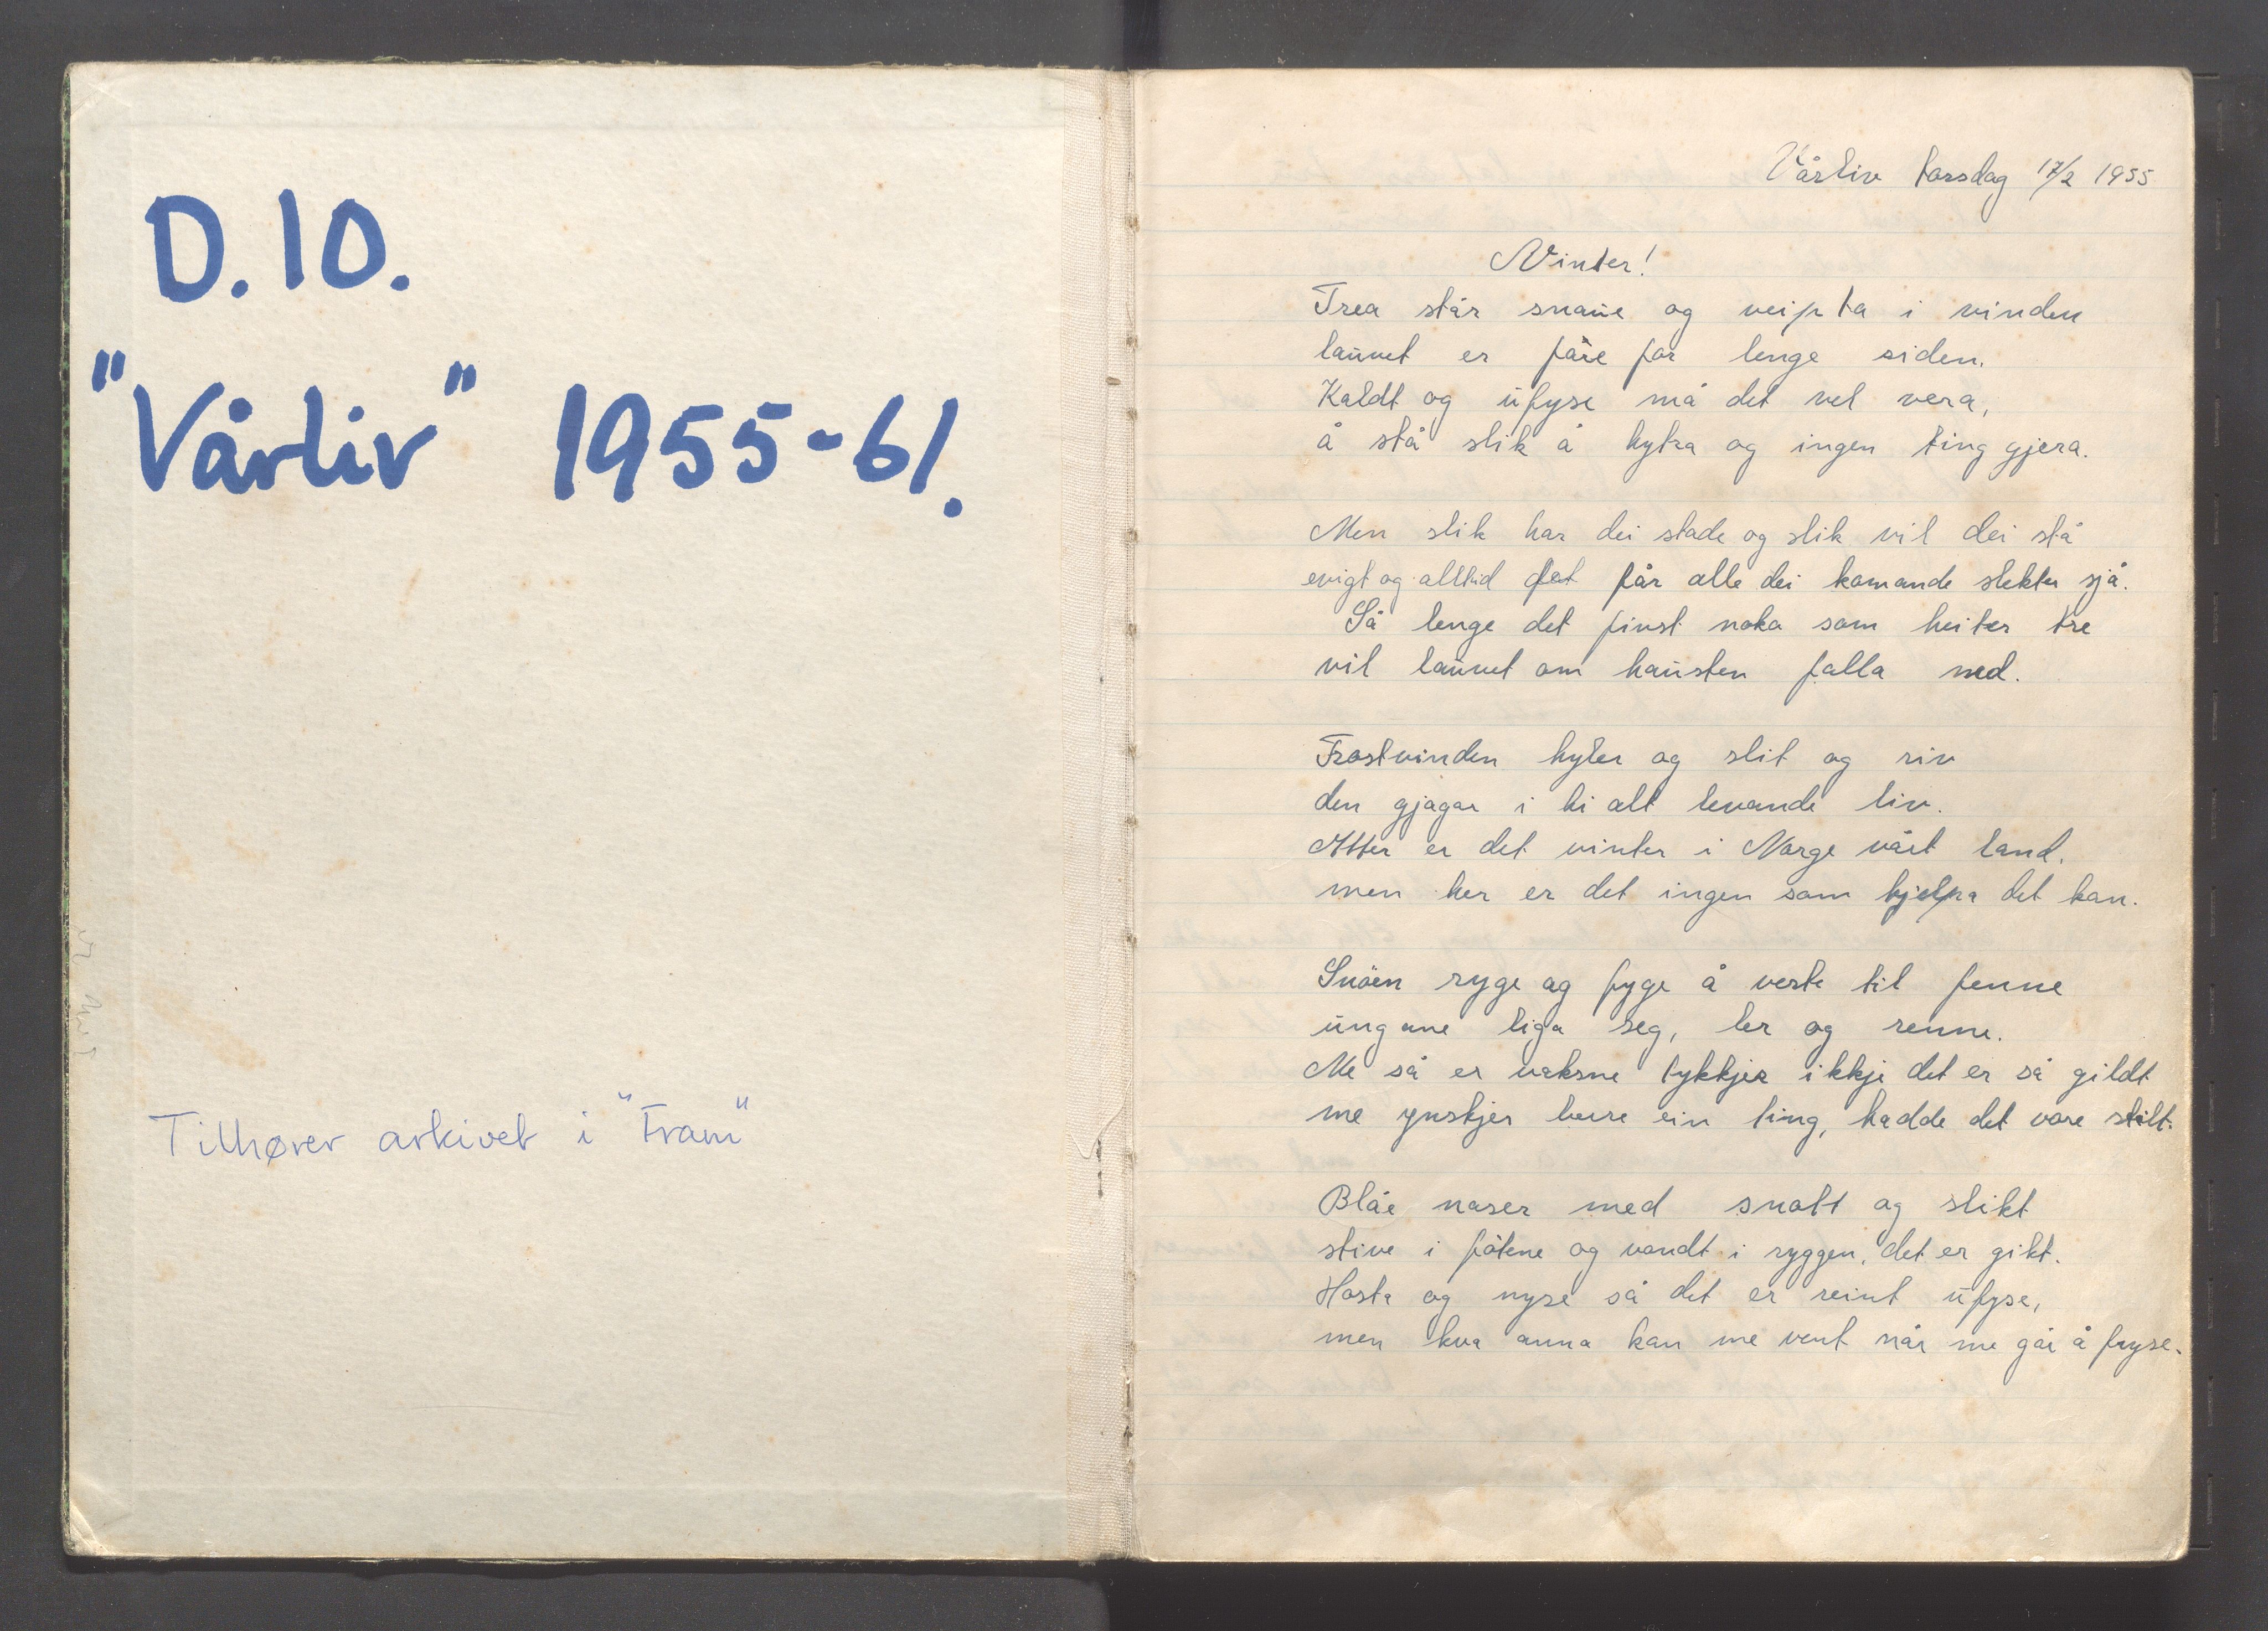 D.10.
"Vårliv" 1955-61.
Tilhører arkivet i "Fram"
Vårliv torsdag 17/2 1955
Vinter!
Trea står snaue og veipta i vinden
lauvet er fare for lenge siden.
Kaldt og ufyse må det vel vera,
å stå slik å hytra og ingen ting gjera.
Men slik har dei stade og slik vil dei stå
evigt og alltid det får alle dei komande slekter sjå.
Så lenge det finst noko som heiter tre
vil lauvet om hausten falla ned.
Frostvinden hyler og slit og riv
den gjagar i hi alt levande liv.
Atter er det vinter i Norge vårt land.
men her er det ingen som hjelpa det kan.
Snöen ryge og fyge å verte til fenne
ungane liga seg, ler og renne.
Me så er vaksne tykkjer ikkje det er så gildt
me ynskjer berre ein ting, hadde det vore stilt.
Blåe naser med snott og slikt
stive i føtene og vondt i ryggen, det er gikt.
Hosta og nyse så det er reint ufyse,
men kva anna kan me vent når me går å fryse.